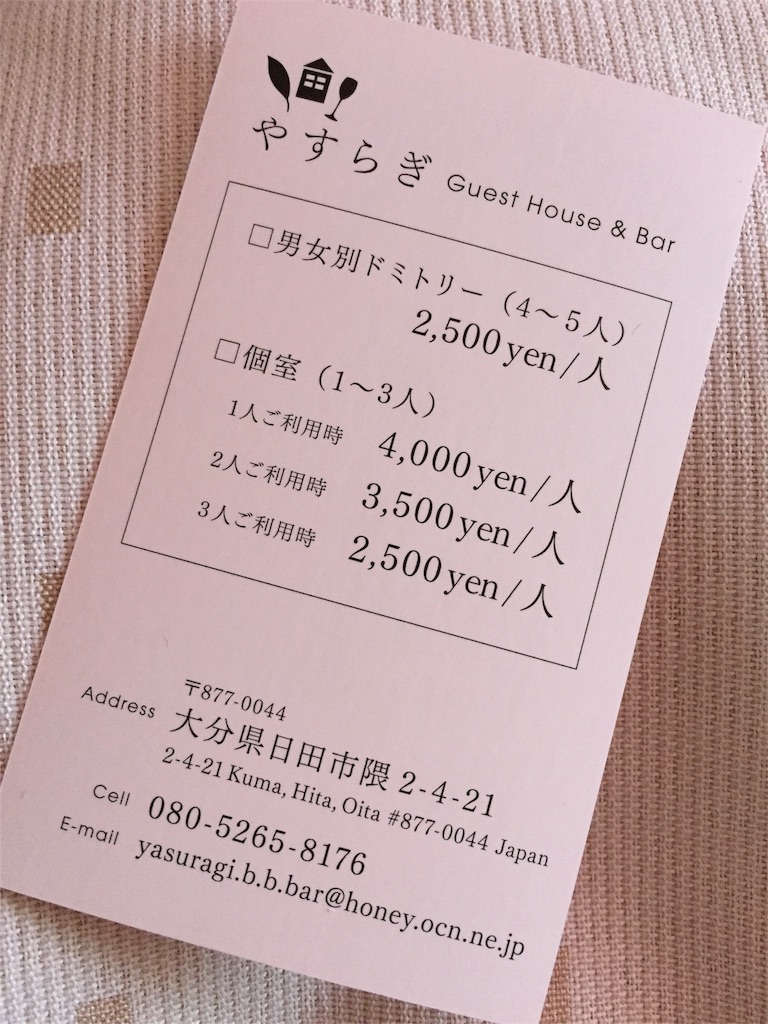 やすらぎ Guest House & Bar
□男女別ドミトリー（4〜5人）
2,500yen/人
□個室（1〜3人）
1人ご利用時 4,000yen/人
2人ご利用時 3,500yen/人
3人ご利用時 2,500yen/人
〒877-0044
Address 大分県日田市隈 2-4-21
2-4-21 Kuma, Hita, Oita #877-0044 Japan
Cell 080-5265-8176
E-mail yasuragi.b.b.bar@honey.ocn.ne.jp